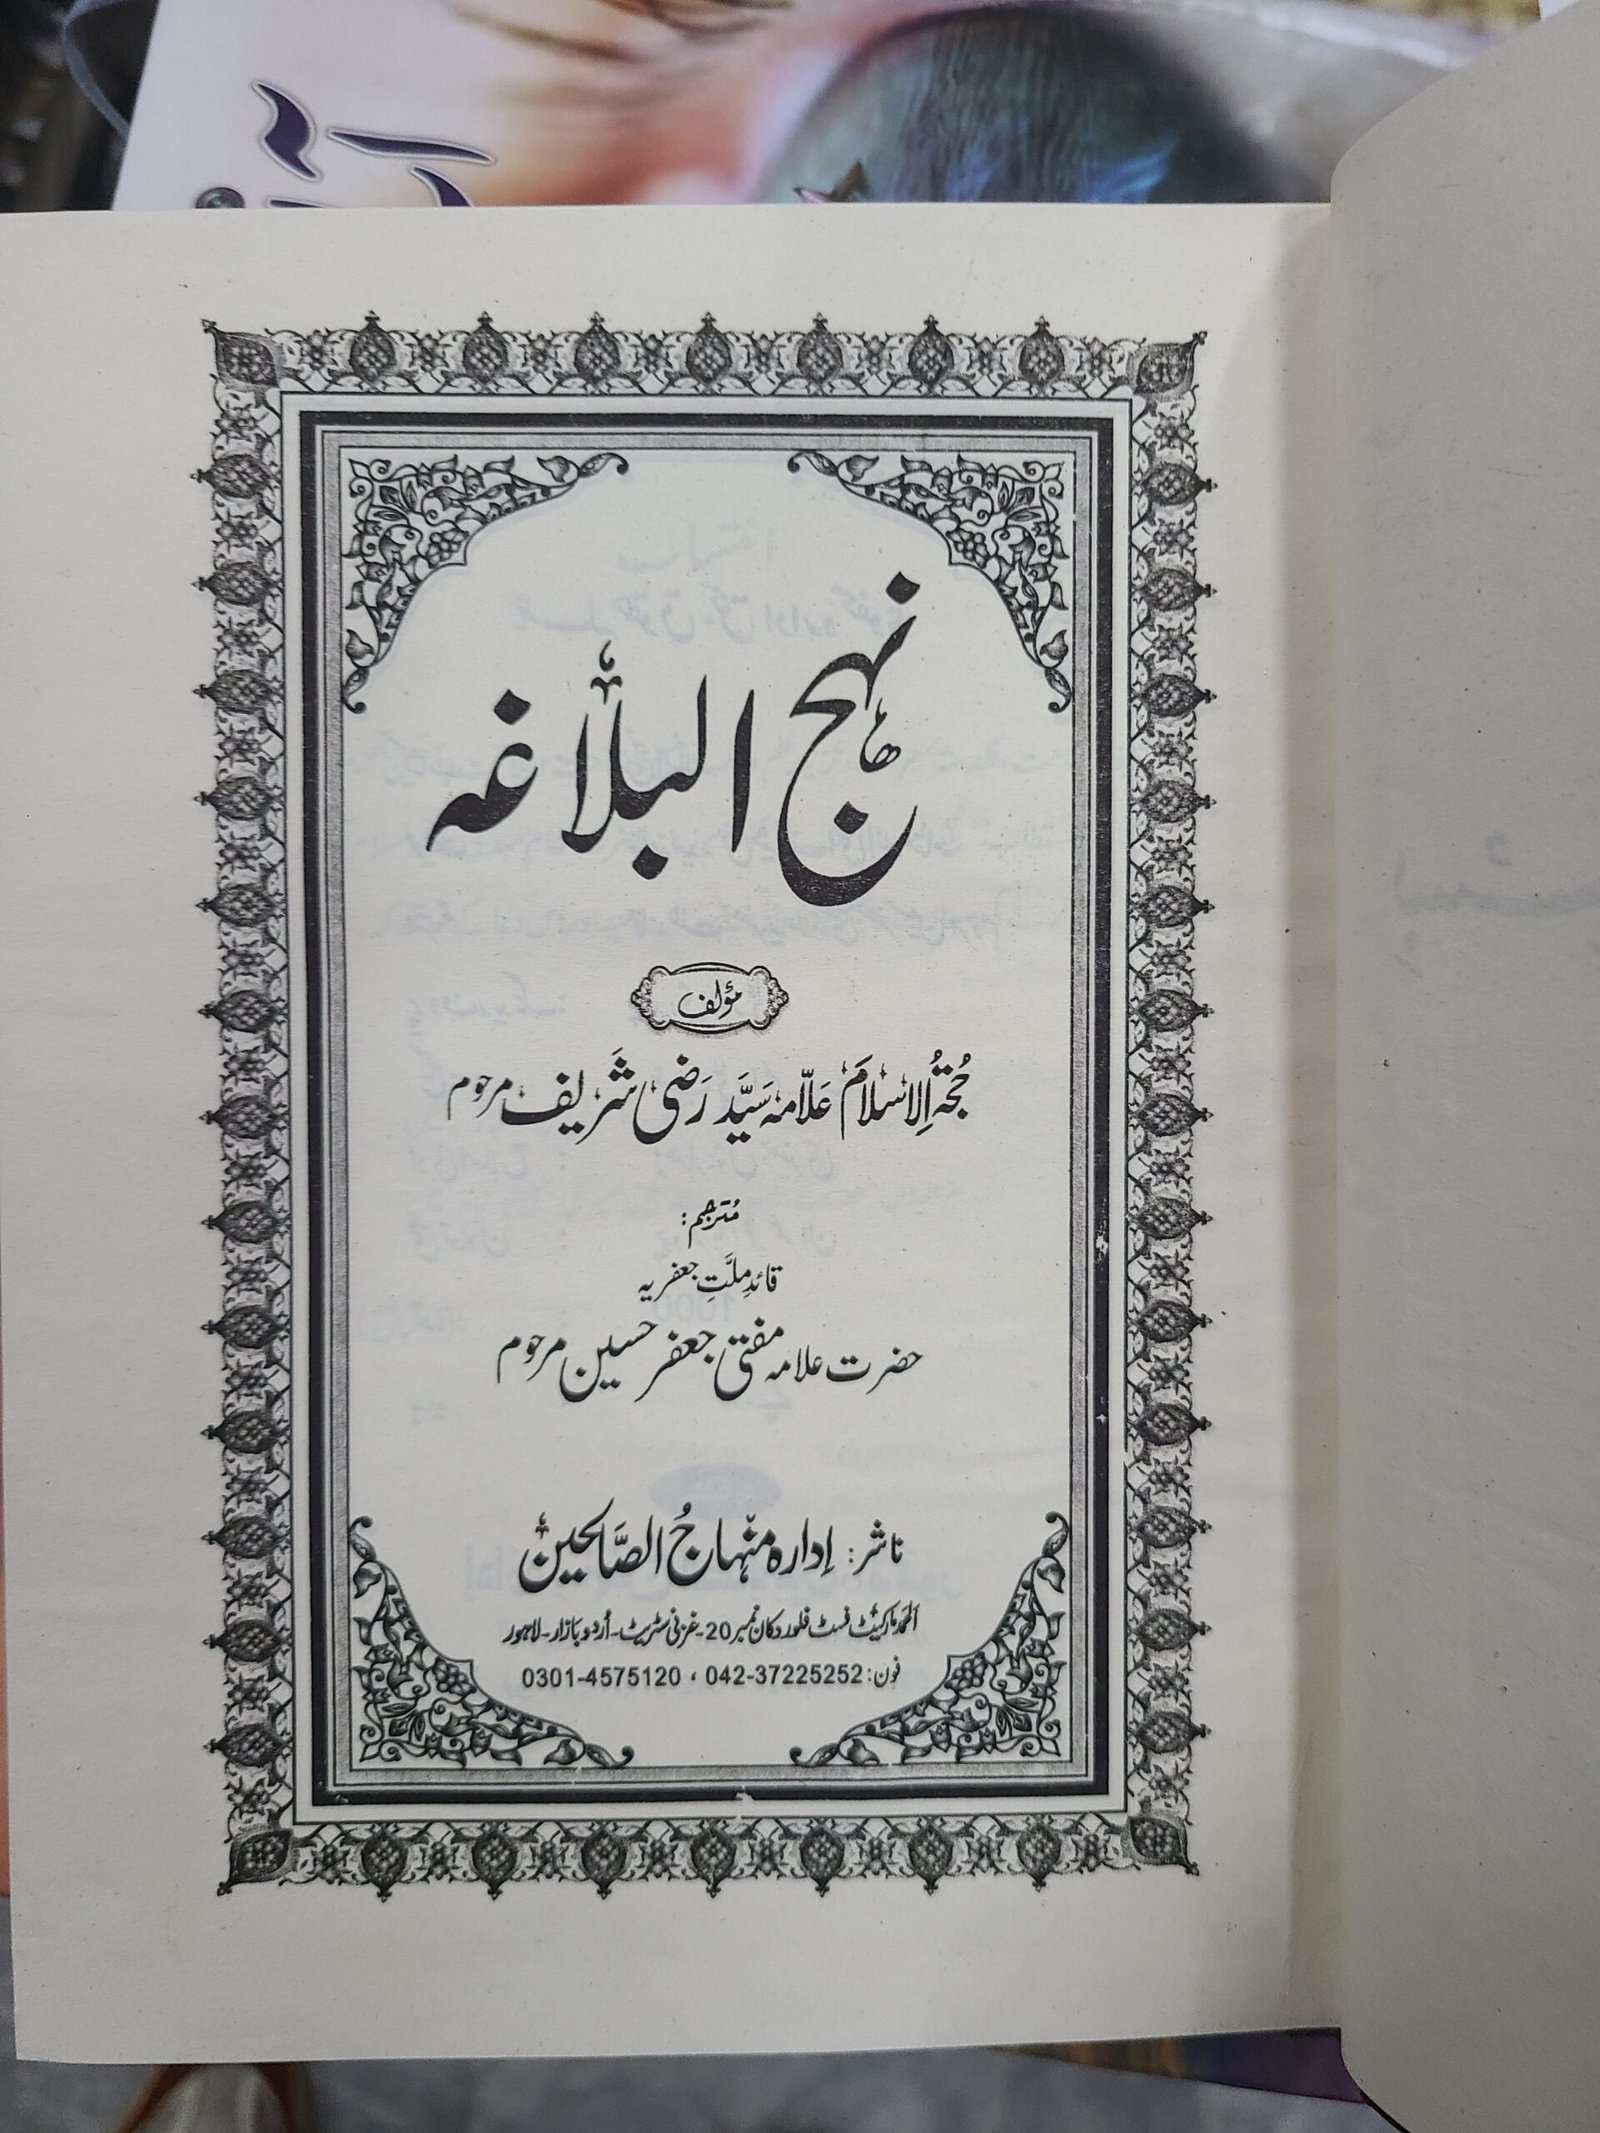 نہج البلاغہ
مؤلف
حُجۃُ الاِسلام علّامہ سَیَّد رَضی شَریف مرحوم
مُترجم:
قائدِ ملَّتِ جعفریہ
حضرت علامہ مفتی جعفر حسین مرحوم
ناشر: اِدارہ منہاجُ الصَّالحین
الحمد مارکیٹ فسٹ فلور دکان نمبر 20۔ غزنی سٹریٹ۔ اُردو بازار۔ لاہور
فون: 042-37225252 ، 0301-4575120